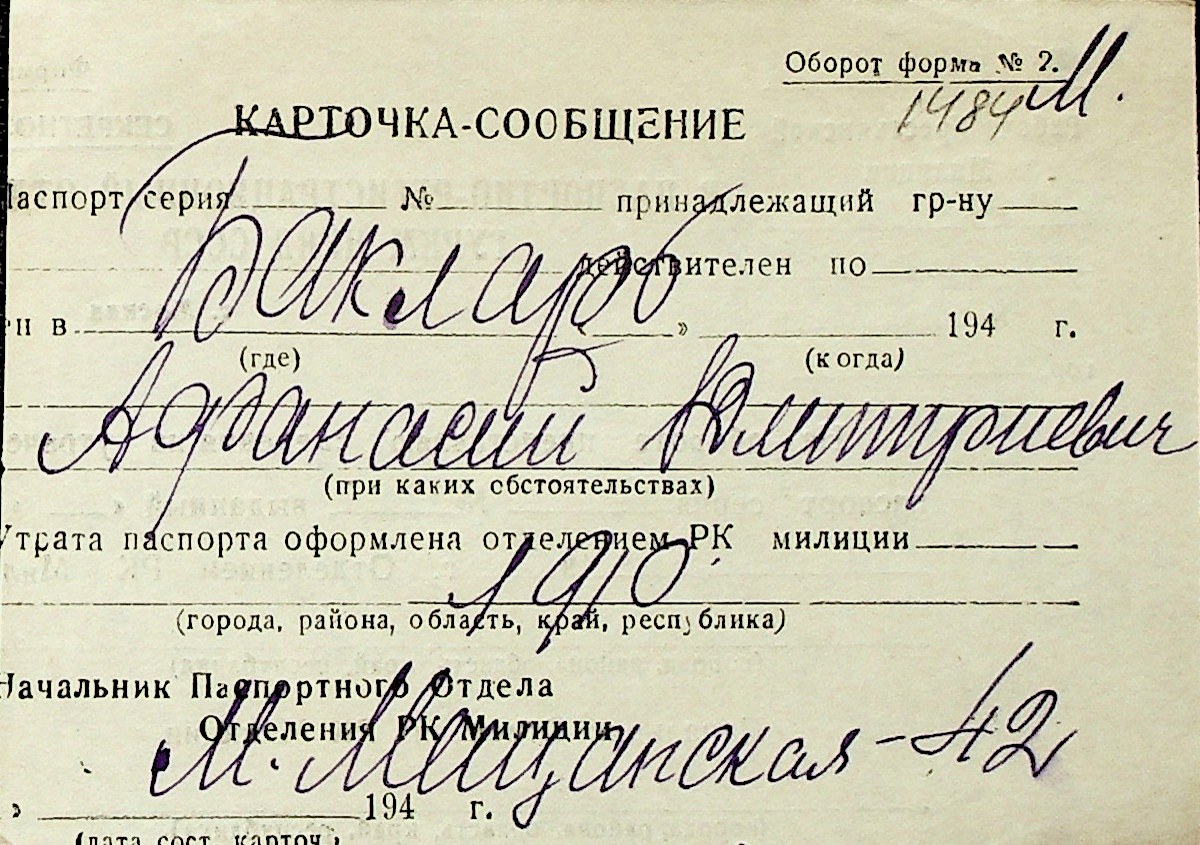 Оборот форма № 2.
1484 М.
КАРТОЧКА-СООБЩЕНИЕ
Паспорт серия № принадлежащий гр-ну
действителен по
ен в « » 194 г.
(где) (когда)
Афанасий Дмитриевич
(при каких обстоятельствах)
Утрата паспорта оформлена отделением РК милиции
1910.
(города, района, область, край, республика)
Начальник Паспортного Отдела
Отделения РК Милиции
М. Мещанская - 42
» 194 г.
(дата сост. карточ.